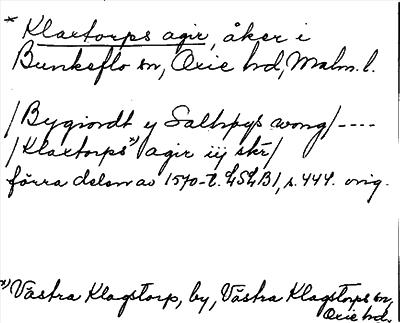 * Klaxtorps agir, åker i
Bunkeflo sn, Oxie hd, Malm. l.
/Bygiordt y Salhøys wong/----
/Klaxtorps x) agir iij skr/
förra delen av 1570-t. LSLB1, s. 444. orig.
x) Västra Klagstorp, by, Västra Klagstorps sn,
Oxie hd.